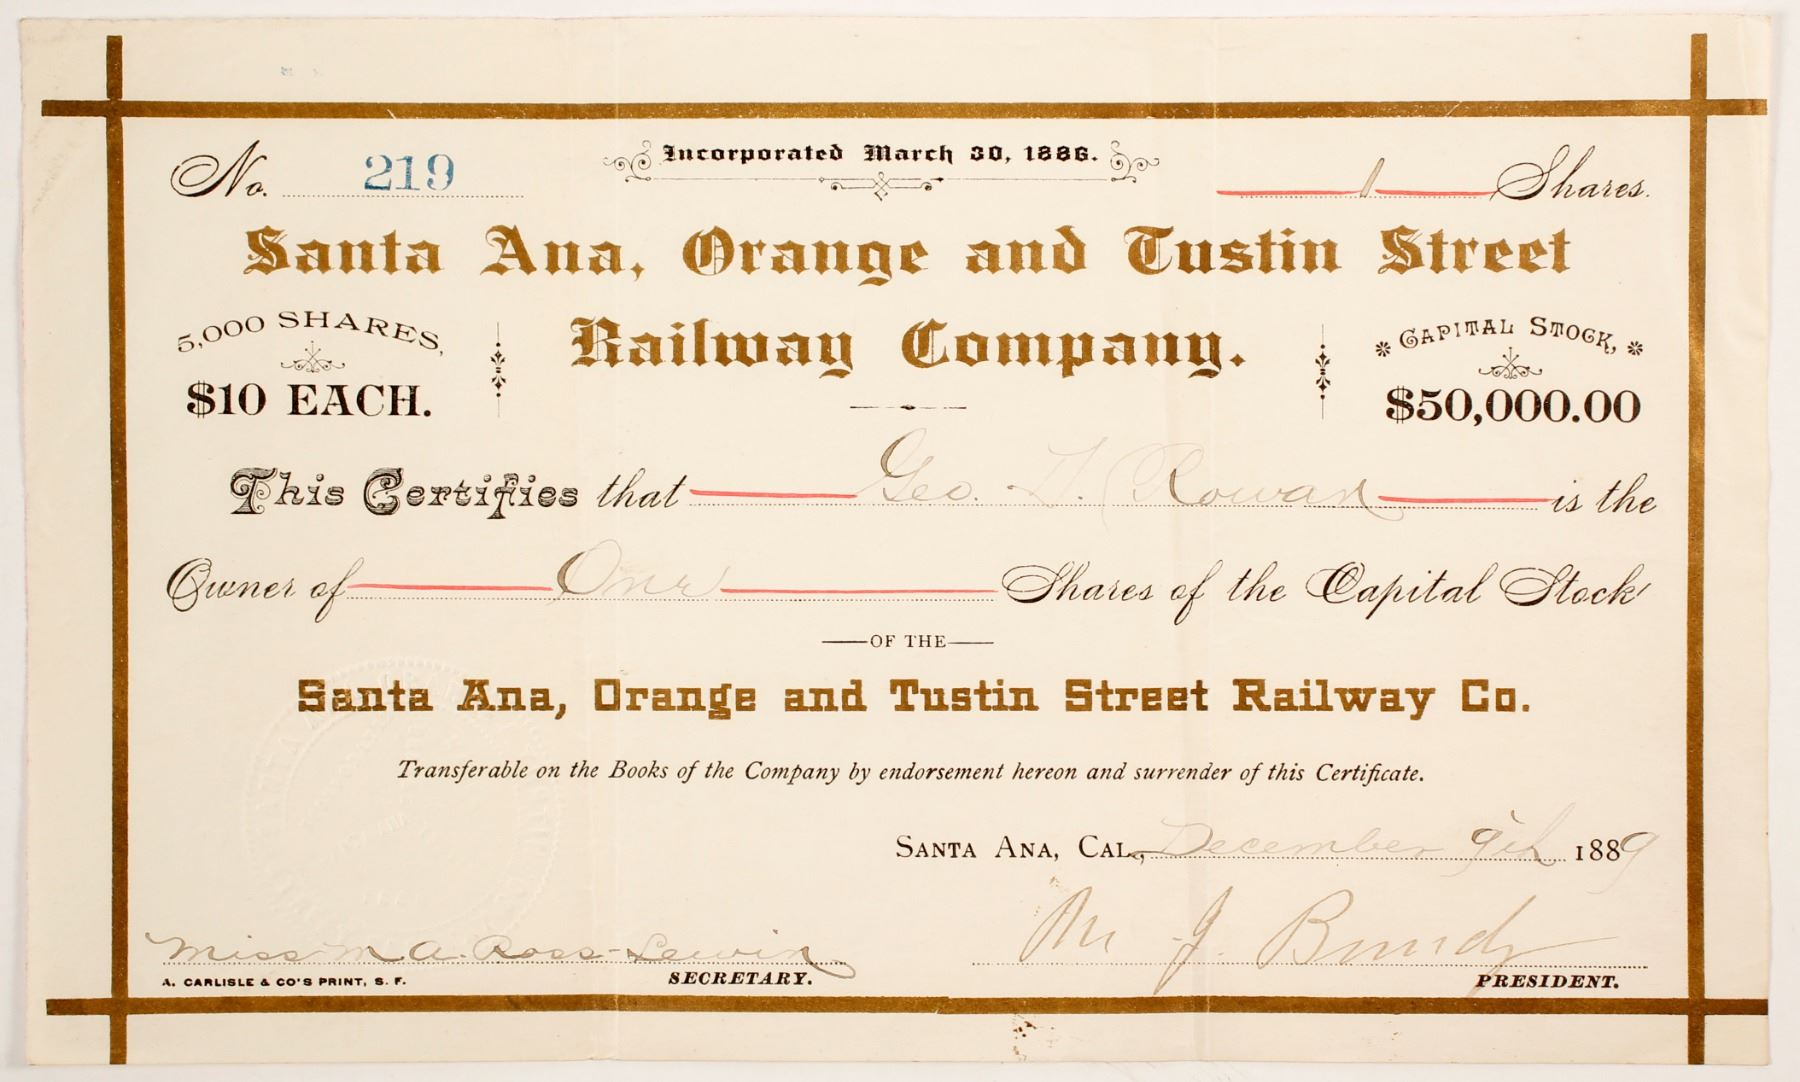 Incorporated March 30, 1886.
No. 219
1 Shares.
Santa Ana, Orange and Tustin Street
Railway Company.
5,000 SHARES,
$10 EACH.
CAPITAL STOCK,
$50,000.00
This Certifies that Geo. Rowan is the
Owner of One Shares of the Capital Stock
OF THE
Santa Ana, Orange and Tustin Street Railway Co.
Transferable on the Books of the Company by endorsement hereon and surrender of this Certificate.
SANTA ANA, CAL., December 9th 1889
Miss M A. Ross-Lewin
SECRETARY.
M. J. Bundy
PRESIDENT.
A. CARLISLE & CO'S PRINT, S. F.